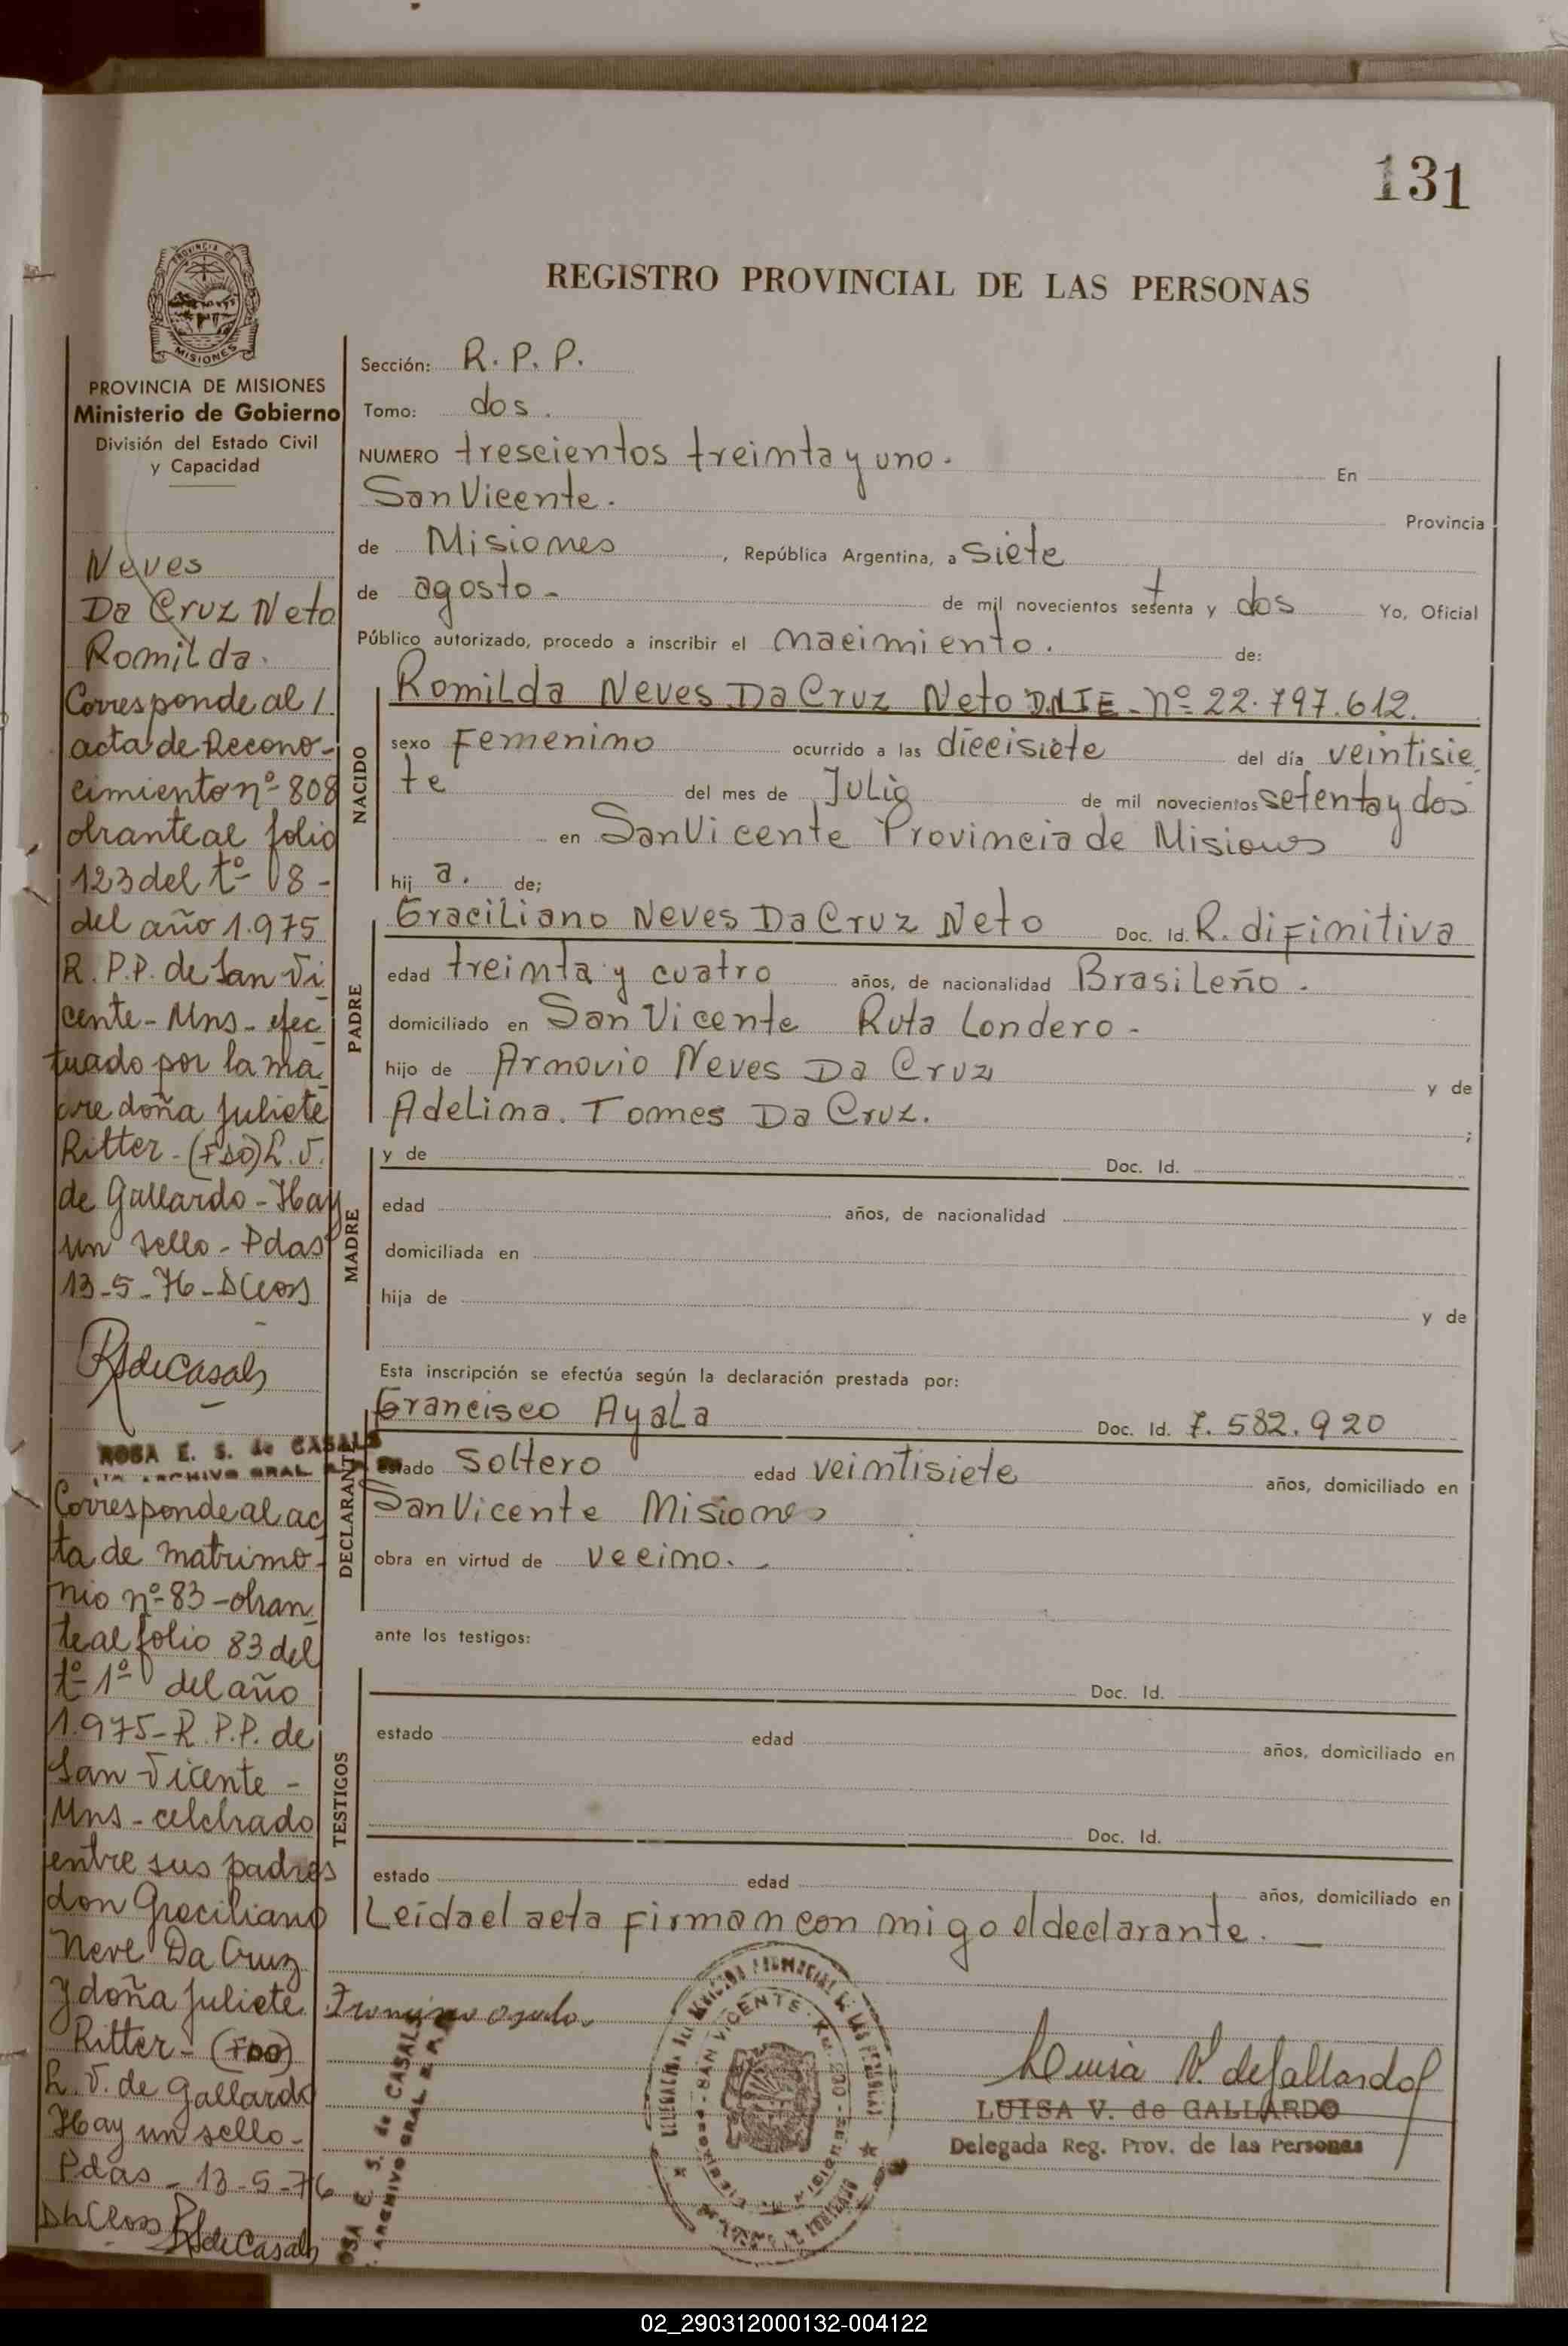 131
REGISTRO PROVINCIAL DE LAS PERSONAS
PROVINCIA DE MISIONES
Ministerio de Gobierno
División del Estado Civil
y Capacidad
Neves
Da Cruz Neto
Romilda.
Corresponde al /
acta de Recono-
cimiento nº 808
obrante al folio
123 del tº 8-
del año 1.975
R.P.P. de San Vi
cente - Mns - efec
tuado por la ma
dre doña Juliete
Ritter - (FDO) L. V.
de Gallardo - Hay
un sello - Pdas
13-5-76 -
RSdeCasals
ROSA E. S. de CASALS
Corresponde al ac
ta de matrimo-
nio nº 83 - obran
te al folio 83 del
tº 1º del año
1.975 - R.P.P. de
San Vicente -
Mns - celebrado
entre sus padres
don Graciliano
Neve Da Cruz
y doña Juliete
Ritter - (FDO)
L. V. de Gallardo
Hay un sello -
Pdas - 13-5-76
RSdeCasals
Sección: R. P. P.
Tomo: dos.
NUMERO trescientos treinta y uno. En
San Vicente. Provincia
de Misiones, República Argentina, a siete
de agosto - de mil novecientos setenta y dos Yo, Oficial
Público autorizado, procedo a inscribir el nacimiento. de:
NACIDO
Romilda Neves Da Cruz Neto D.N.I E - nº 22.797.612.
sexo Femenino ocurrido a las diecisiete del día veintisie
te del mes de Julio de mil novecientos setenta y dos
en San Vicente Provincia de Misiones
hij a. de;
PADRE
Graciliano Neves Da Cruz Neto Doc. Id. R. difinitiva
edad treinta y cuatro años, de nacionalidad Brasileño.
domiciliado en San Vicente Ruta Londero -
hijo de Arnovio Neves Da Cruz y de
Adelina. Tomes Da Cruz. ;
MADRE
y de Doc. Id.
edad años, de nacionalidad
domiciliada en
hija de y de
Esta inscripción se efectúa según la declaración prestada por:
DECLARANTE
Francisco Ayala Doc. Id. 7.582.920
estado soltero edad veintisiete años, domiciliado en
San Vicente Misiones
obra en virtud de vecino.
ante los testigos:
TESTIGOS
Doc. Id.
estado edad años, domiciliado en
Doc. Id.
estado edad años, domiciliado en
Leída el acta firman con migo el declarante.
Luisa V. de Gallardo
LUISA V. de GALLARDO
Delegada Reg. Prov. de las Personas
SAN VICENTE
02_290312000132-004122